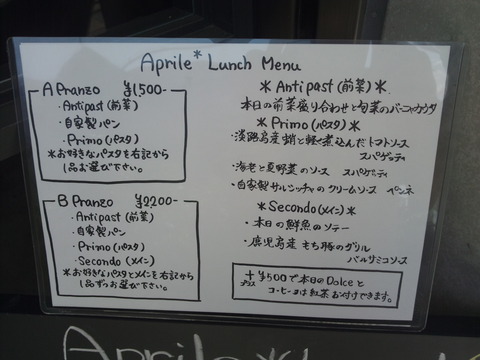 Aprile* Lunch Menu
A Pranzo ¥1,500-
・Antipast (前菜)
・自家製パン
・Primo (パスタ)
*お好きなパスタを右記から
1品お選び下さい。
B Pranzo ¥2,200-
・Antipast (前菜)
・自家製パン
・Primo (パスタ)
・Secondo (メイン)
*お好きなパスタとメインを右記から
1品ずつお選び下さい。
* Antipast (前菜) *
本日の前菜盛り合わせと旬菜のバーニャカウダ
* Primo (パスタ) *
・淡路島産蛸と軽く煮込んだトマトソース
スパゲッティ
・海老と夏野菜のソース スパゲッティ
・自家製サルシッチャのクリームソース ペンネ
* Secondo (メイン) *
・本日の鮮魚のソテー
・鹿児島産もち豚のグリル
バルサミコソース
+プラス ¥500で本日のDolceと
コーヒー又は紅茶お付けできます。
Aprile *